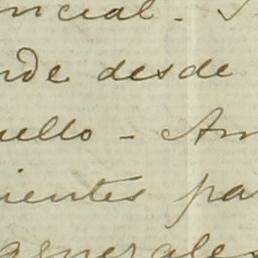 ncial - 
nde desde
uello - Am
ientes pa
generales